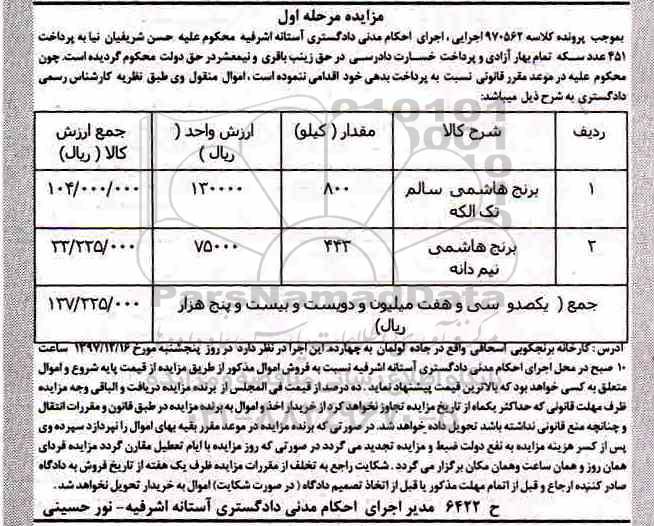 مزایده مرحله اول
بموجب پرونده کلاسه ۹۷۰۵۶۲ اجرایی ، اجرای احکام مدنی دادگستری آستانه اشرفیه محکوم علیه حسن شریفیان نیا به پرداخت
۴۵۱ عدد سکه تمام بهار آزادی و پرداخت خسارت دادرسی در حق زینب باقری و نیمعشر در حق دولت محکوم گردیده است. چون
محکوم علیه در موعد مقرر قانونی نسبت به پرداخت بدهی خود اقدامی ننموده است ، اموال منقول وی طبق نظریه کارشناس رسمی
دادگستری به شرح ذیل میباشد:
ردیف شرح کالا مقدار ( کیلو) ارزش واحد ( ریال ) جمع ارزش کالا ( ریال)
۱ برنج هاشمی سالم تک الکه ۸۰۰ ۱۳۰۰۰۰ ۱۰۴/۰۰۰/۰۰۰
۲ برنج هاشمی نیم دانه ۴۴۳ ۷۵۰۰۰ ۳۳/۲۲۵/۰۰۰
جمع ( یکصدو سی و هفت میلیون و دویست و بیست و پنج هزار ریال) ۱۳۷/۲۲۵/۰۰۰
آدرس : کارخانه برنجکوبی اسحاقی واقع در جاده لولمان به چهارده. این اجرا در نظر دارد در روز پنجشنبه مورخ ۱۳۹۷/۱۲/۱۶ ساعت
۱۰ صبح در محل اجرای احکام مدنی دادگستری آستانه اشرفیه نسبت به فروش اموال مذکور از طریق مزایده از قیمت پایه شروع و اموال
متعلق به کسی خواهد بود که بالاترین قیمت پیشنهاد نماید . ده درصد از قیمت فی المجلس از برنده مزایده دریافت و الباقی وجه مزایده
ظرف مهلت قانونی که حداکثر یکماه از تاریخ مزایده تجاوز نخواهد کرد از خریدار اخذ و اموال به برنده مزایده در طبق قانون و مقررات انتقال
و چنانچه منع قانونی نداشته باشد تحویل داده خواهد شد. در صورتی که برنده مزایده در موعد مقرر بقیه بهای اموال را نپردازد سپرده وی
پس از کسر هزینه مزایده به نفع دولت ضبط و مزایده تجدید می گردد در صورتی که روز مزایده با ایام تعطیل مقارن گردد مزایده فردای
همان روز و همان ساعت وهمان مکان برگزار می گردد . شکایت راجع به تخلف از مقررات مزایده ظرف یک هفته از تاریخ فروش به دادگاه
صادر کننده ارجاع و قبل از اتمام مهلت مذکور یا قبل از اتخاذ تصمیم دادگاه ( در صورت شکایت) اموال به خریدار تحویل نخواهد شد.
ح ۶۴۲۲ مدیر اجرای احکام مدنی دادگستری آستانه اشرفیه- نور حسینی
ParsNamadData